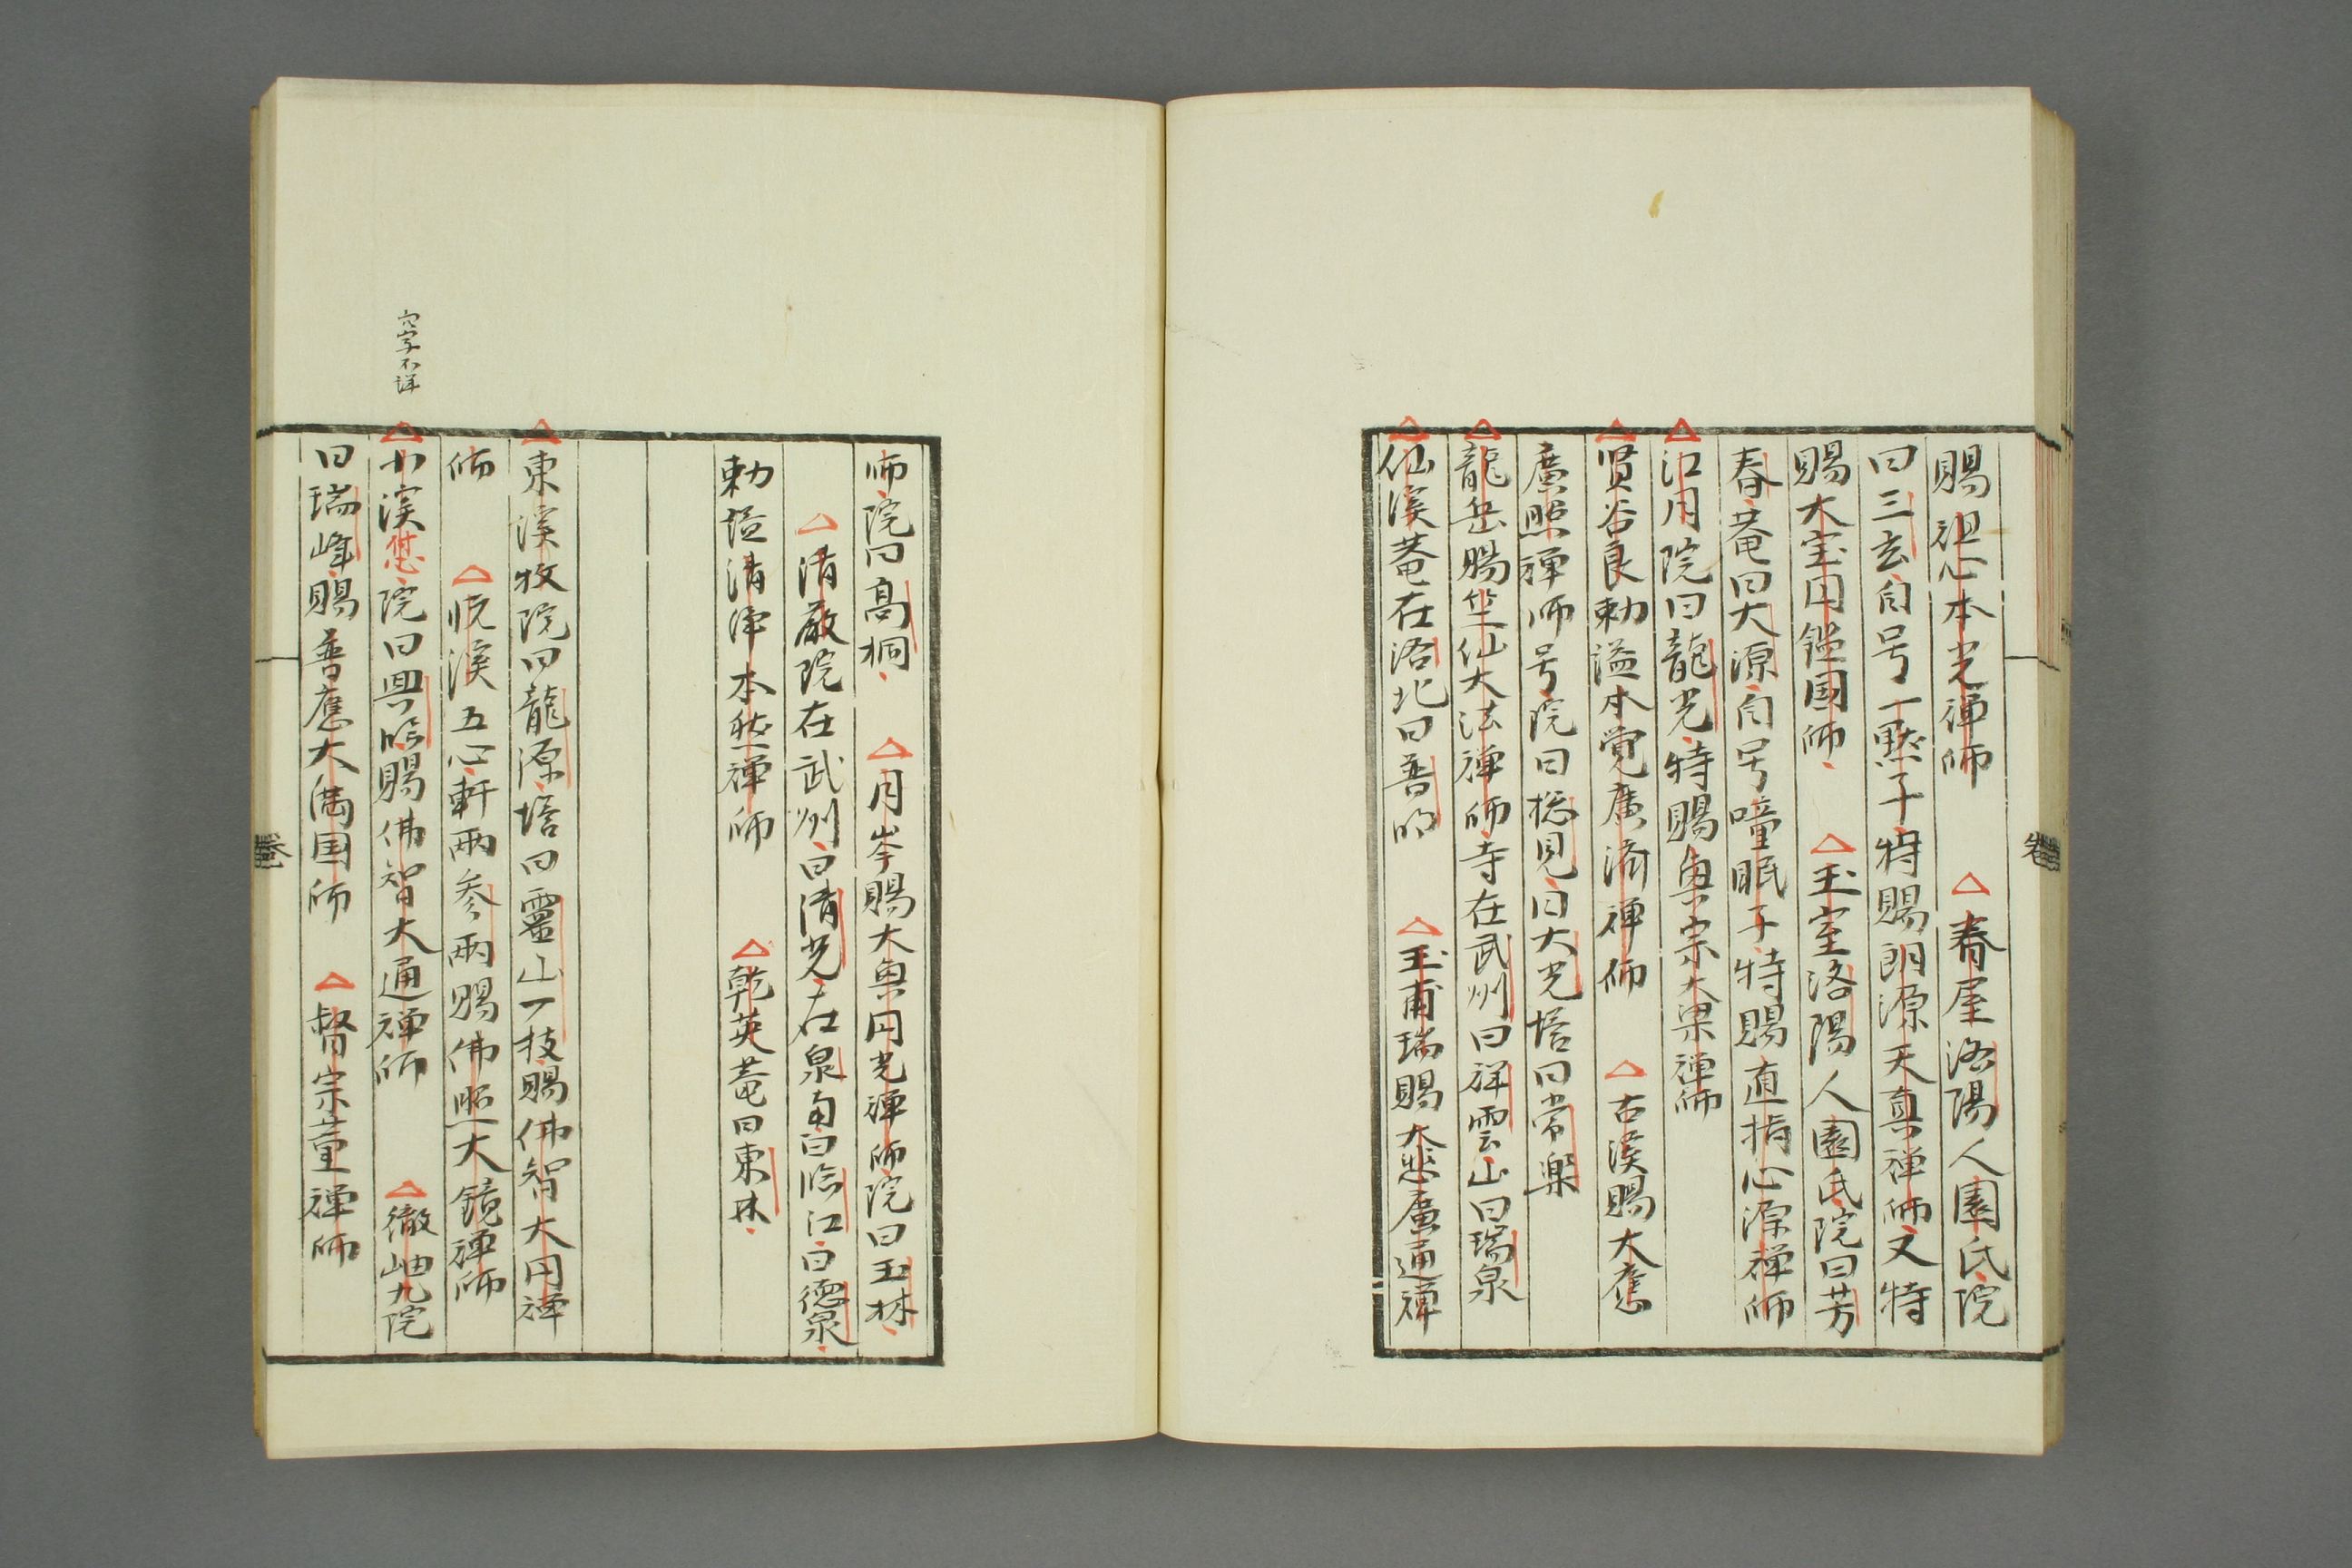 賜祖心本光禅师 △春屋洛陽人園氏院
曰三玄自号一黙子特賜朗源天真禅师又特
賜大宝円鑑国师 △玉室洛陽人園氏院曰芳
春菴曰大源自号瞳眠子特賜直指心源禅师
△江月院曰龍光特賜奥宗大梁禅师
△贤谷良勅謚本覚廣濟禅师 △古溪賜大
廣照禅师号院曰捴見曰大光塔曰常楽
△龍岳賜坐仙大法禅师寺在武州曰祥雲山曰瑞泉
△仙溪菴在洛北曰普明 △玉甫瑞賜大悲廣通禅
卷
师院曰高桐 △月岑賜大奥円光禅师院曰玉林
△清巌院在武州曰清光在泉南曰临江曰德泉
勅謚清浄本然禅师 △乾英菴曰東林
△東溪牧院曰龍源塔曰靈山一枝賜佛智大円禅
师 △悦溪五心軒兩参兩賜佛照大鏡禅师
△小溪院曰興临賜佛智大通禅师 △徹岫九院
曰瑞峰賜普應大満国师 △督宗董禅师
字不詳
卷